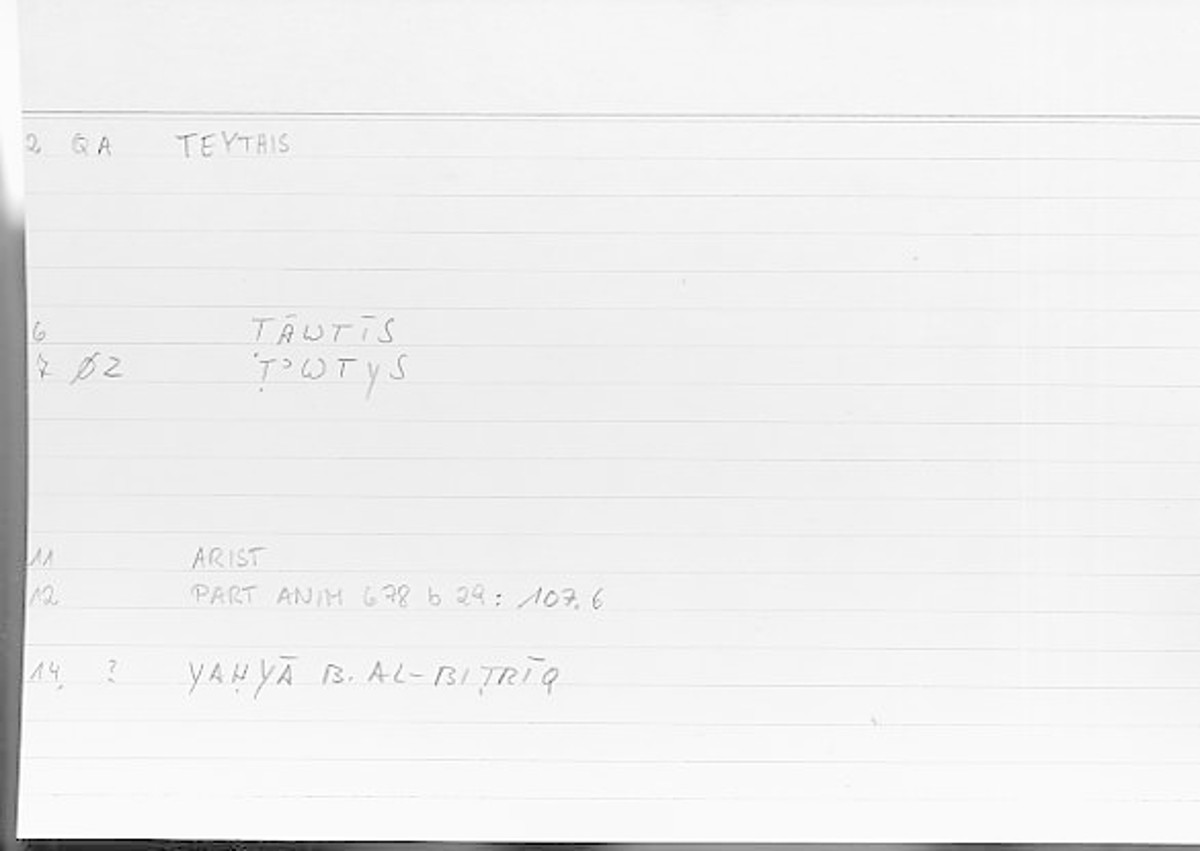 2 QA TEYTHIS
6 TĀWTĪS
7 ØZ ṬʾWTYS
11 ARIST
12 PART ANIM 678 b 29: 107.6
14. ? YAḤYĀ B. AL-BIṬRĪQ